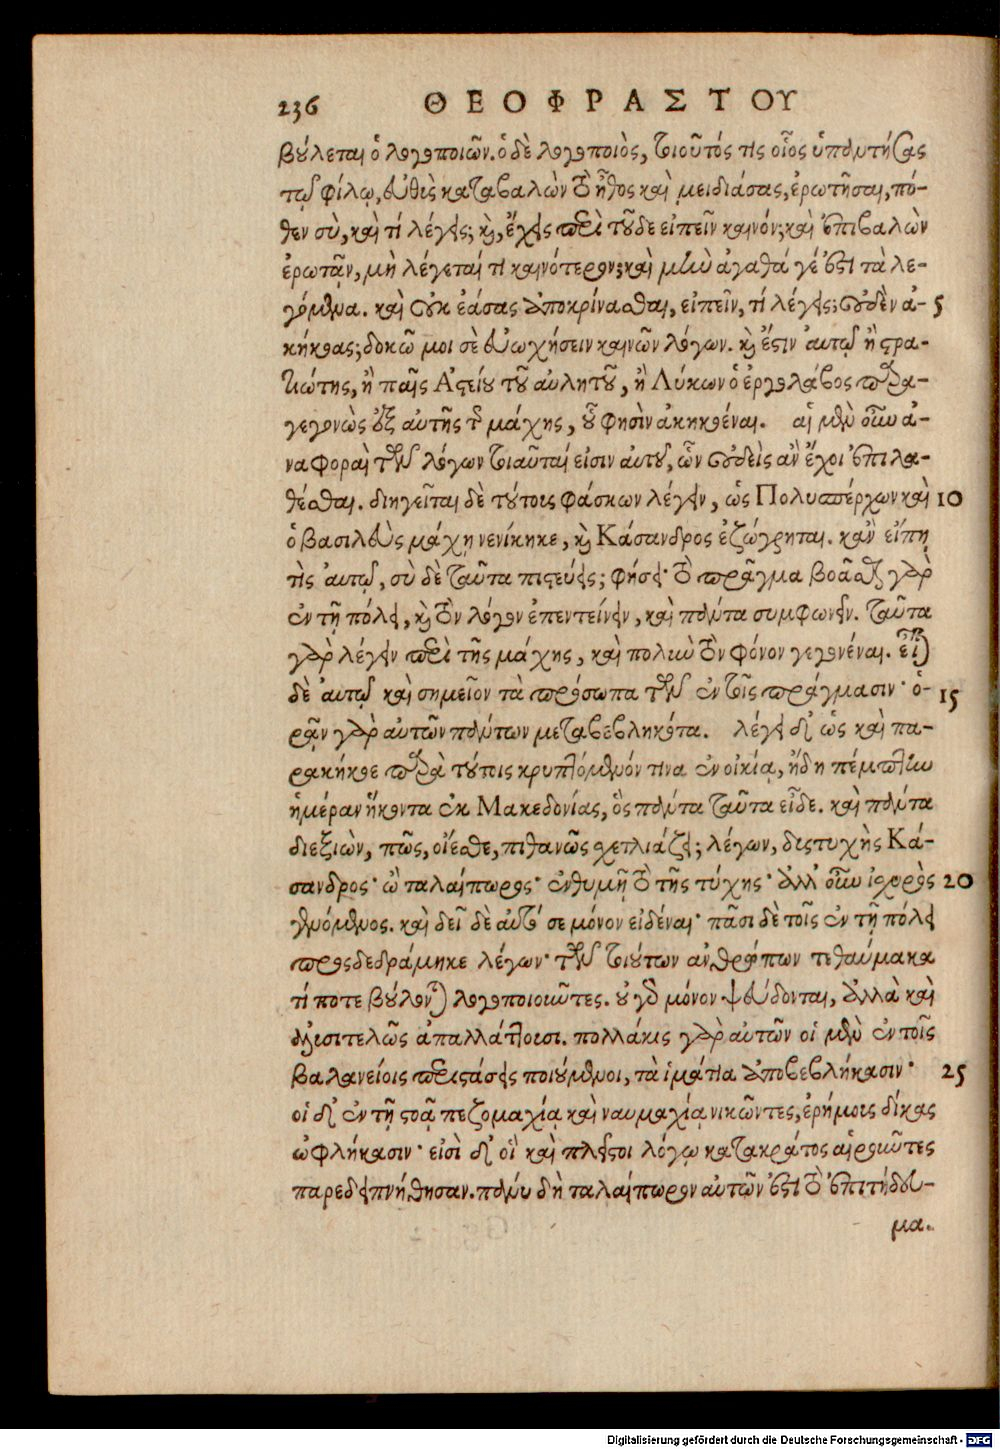 236 ΘΕΟΦΡΑΣΤΟΥ
βούλεται ὁ λογοποιῶν. ὁ δὲ λογοποιὸς, τοιοῦτός τις οἷος ὑπαντήσας
τῷ φίλῳ, εὐθὺς καταβαλὼν τὸ ἦθος καὶ μειδιάσας, ἐρωτῆσαι, πό-
θεν σὺ, καὶ τί λέγεις; καὶ, ἔχεις περὶ τοῦδε εἰπεῖν καινόν; καὶ ἐπιβαλὼν
ἐρωτᾷν, μὴ λέγεταί τι καινότερον; καὶ μὴν ἀγαθά γέ ἐστι τὰ λε-
γόμενα. καὶ οὐκ ἐάσας ἀποκρίνασθαι, εἰπεῖν, τί λέγεις; οὐδὲν ἀ- 5
κήκοας; δοκῶ μοι σὲ εὐωχήσειν καινῶν λόγων. καὶ ἔστιν αὐτῷ ἢ στρα-
τιώτης, ἢ παῖς Ἀστείου τοῦ αὐλητοῦ, ἢ Λύκων ὁ ἐργολάβος παρα-
γεγονὼς ἐξ αὐτῆς τῆς μάχης, οὗ φησὶν ἀκηκοέναι. αἱ μὲν οὖν ἀ-
ναφοραὶ τῶν λόγων τοιαῦταί εἰσιν αὐτοῦ, ὧν οὐδεὶς ἂν ἔχοι ἐπιλα-
θέσθαι. διηγεῖται δὲ τούτοις φάσκων λέγειν, ὡς Πολυσπέρχων καὶ 10
ὁ βασιλεὺς μάχῃ νενίκηκε, καὶ Κάσανδρος ἐζώγρηται. κἂν εἴπῃ
τὶς αὐτῷ, σὺ δὲ ταῦτα πιστεύεις; φήσει· τὸ πρᾶγμα βοᾶσθαι γὰρ
ἐν τῇ πόλει, καὶ τὸν λόγον ἐπεντείνειν, καὶ πάντα συμφωνεῖν. ταῦτα
γὰρ λέγειν περὶ τῆς μάχης, καὶ πολὺν τὸν φόνον γεγονέναι. εἶναι
δὲ αὐτῷ καὶ σημεῖον τὰ πρόσωπα τῶν ἐν τοῖς πράγμασιν· ὁ- 15
ρᾷν γὰρ αὐτῶν πάντων μεταβεβληκότα. λέγει δ' ὡς καὶ πα-
ρακήκοε παρὰ τούτοις κρυπτόμενόν τινα ἐν οἰκίᾳ, ἤδη πέμπτην
ἡμέραν ἥκοντα ἐκ Μακεδονίας, ὃς πάντα ταῦτα εἶδε. καὶ πάντα
διεξιὼν, πῶς, οἴεσθε, πιθανῶς σχετλιάζει; λέγων, δυστυχὴς Κά-
σανδρος· ὦ ταλαίπωρος· ἐνθυμῇ τὸ τῆς τύχης· ἀλλ' οὖν ἰσχυρὸς 20
γενόμενος. καὶ δεῖ δὲ αὐτό σε μόνον εἰδέναι· πᾶσι δὲ τοῖς ἐν τῇ πόλει
προσδεδράμηκε λέγων· τῶν τοιούτων ἀνθρώπων τεθαύμακα
τί ποτε βούλονται λογοποιοῦντες. οὐ γὰρ μόνον ψεύδονται, ἀλλὰ καὶ
ἀλυσιτελῶς ἀπαλλάττουσι. πολλάκις γὰρ αὐτῶν οἱ μὲν ἐν τοῖς
βαλανείοις περιστάσεις ποιούμενοι, τὰ ἱμάτια ἀποβεβλήκασιν· 25
οἱ δ' ἐν τῇ στοᾷ πεζομαχίᾳ καὶ ναυμαχίᾳ νικῶντες, ἐρήμους δίκας
ὠφλήκασιν· εἰσὶ δ' οἳ καὶ πλεῖστοι λόγῳ κατακράτος αἱροῦντες
παρεδειπνήθησαν. πάνυ δὴ ταλαίπωρον αὐτῶν ἐστι τὸ ἐπιτήδευ-
μα.
Digitalisierung gefördert durch die Deutsche Forschungsgemeinschaft - DFG